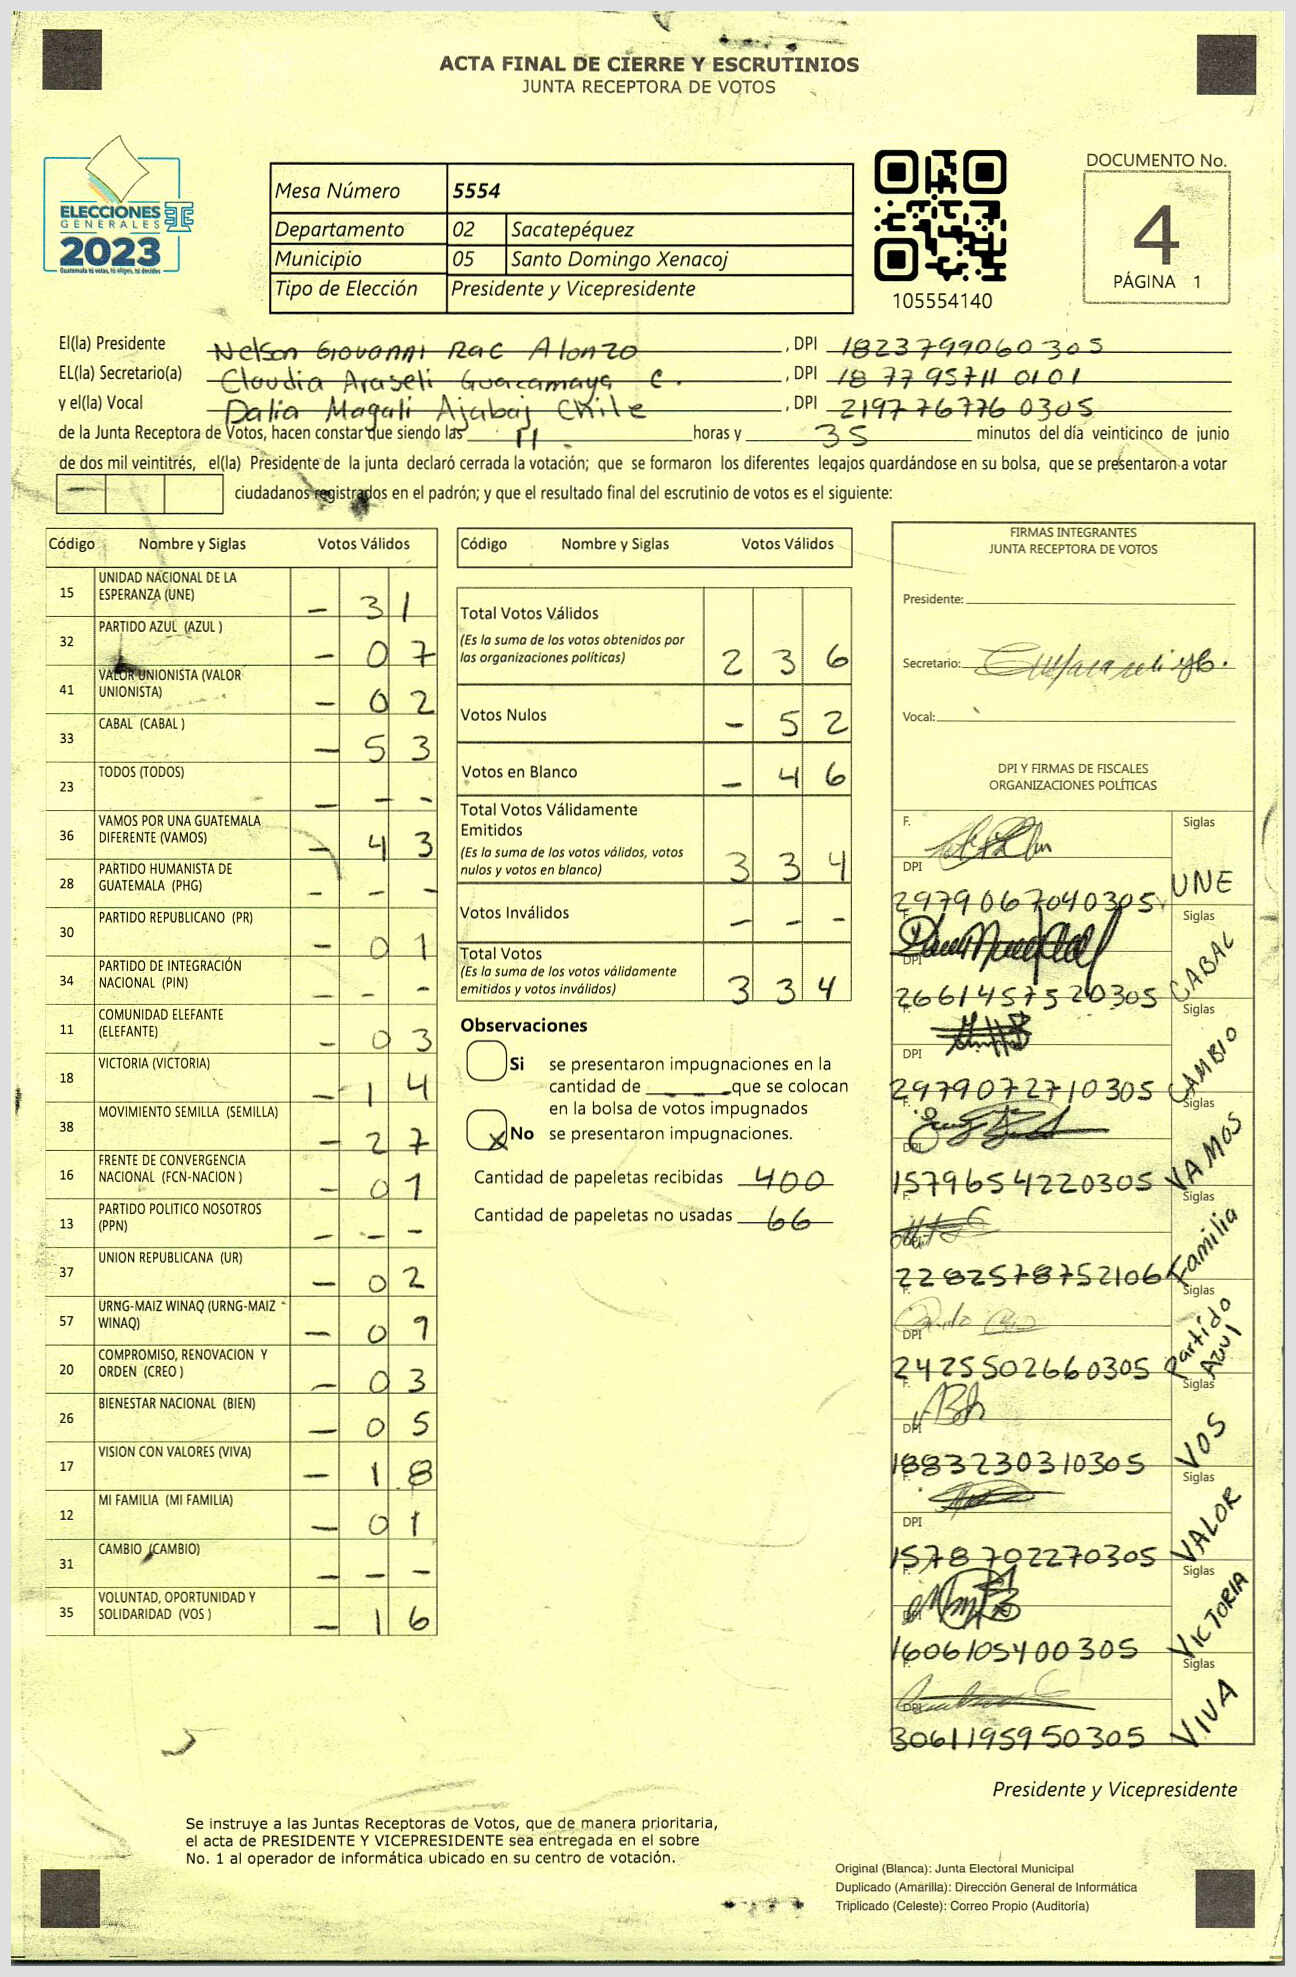 ACTA FINAL DE CIERRE Y ESCRUTINIOS
JUNTA RECEPTORA DE VOTOS
ELECCIONES
GENERALES
2023
Guatemala tú votas, tú eliges, tú decides
Mesa Número 5554
Departamento 02 Sacatepéquez
Municipio 05 Santo Domingo Xenacoj
Tipo de Elección Presidente y Vicepresidente
105554140
DOCUMENTO No.
4
PÁGINA 1
El(la) Presidente Nelson Giovanni Rac Alonzo, DPI 1823799060305
EL(la) Secretario(a) Claudia Araseli Guacamaya C., DPI 1877957110101
y el(la) Vocal Dalia Magali Ajabaj Chile, DPI 2197767760305
de la Junta Receptora de Votos, hacen constar que siendo las 11 horas y 35 minutos del día veinticinco de junio
de dos mil veintitrés, el(la) Presidente de la junta declaró cerrada la votación; que se formaron los diferentes legajos guardándose en su bolsa, que se presentaron a votar
— ciudadanos registrados en el padrón; y que el resultado final del escrutinio de votos es el siguiente:
Código Nombre y Siglas Votos Válidos
15 UNIDAD NACIONAL DE LA ESPERANZA (UNE) - 3 1
32 PARTIDO AZUL (AZUL ) - 0 7
41 VALOR UNIONISTA (VALOR UNIONISTA) - 0 2
33 CABAL (CABAL ) - 5 3
23 TODOS (TODOS) - - -
36 VAMOS POR UNA GUATEMALA DIFERENTE (VAMOS) - 4 3
28 PARTIDO HUMANISTA DE GUATEMALA (PHG) - - -
30 PARTIDO REPUBLICANO (PR) - 0 1
34 PARTIDO DE INTEGRACIÓN NACIONAL (PIN) - - -
11 COMUNIDAD ELEFANTE (ELEFANTE) - 0 3
18 VICTORIA (VICTORIA) - 1 4
38 MOVIMIENTO SEMILLA (SEMILLA) - 2 7
16 FRENTE DE CONVERGENCIA NACIONAL (FCN-NACION ) - 0 1
13 PARTIDO POLITICO NOSOTROS (PPN) - - -
37 UNION REPUBLICANA (UR) - 0 2
57 URNG-MAIZ WINAQ (URNG-MAIZ - WINAQ) - 0 9
20 COMPROMISO, RENOVACION Y ORDEN (CREO ) - 0 3
26 BIENESTAR NACIONAL (BIEN) - 0 5
17 VISION CON VALORES (VIVA) - 1 8
12 MI FAMILIA (MI FAMILIA) - 0 1
31 CAMBIO (CAMBIO) - - -
35 VOLUNTAD, OPORTUNIDAD Y SOLIDARIDAD (VOS ) - 1 6
Código Nombre y Siglas Votos Válidos
Total Votos Válidos 2 3 6
(Es la suma de los votos obtenidos por
las organizaciones políticas)
Votos Nulos - 5 2
Votos en Blanco - 4 6
Total Votos Válidamente
Emitidos 3 3 4
(Es la suma de los votos válidos, votos
nulos y votos en blanco)
Votos Inválidos - - -
Total Votos 3 3 4
(Es la suma de los votos válidamente
emitidos y votos inválidos)
Observaciones
Si se presentaron impugnaciones en la
cantidad de - - - que se colocan
en la bolsa de votos impugnados
X No se presentaron impugnaciones.
Cantidad de papeletas recibidas 400
Cantidad de papeletas no usadas 66
FIRMAS INTEGRANTES
JUNTA RECEPTORA DE VOTOS
Presidente:
Secretario:
Vocal:
DPI Y FIRMAS DE FISCALES
ORGANIZACIONES POLÍTICAS
F. Siglas
DPI 2979067040305 UNE
F. Siglas
DPI 2661457520305 CABAL
F. Siglas
DPI 2979072710305 CAMBIO
F. Siglas
DPI 1579654220305 VAMOS
F. Siglas
2282578752106 Familia
Siglas
DPI 2425502660305 Partido Azul
F. Siglas
DPI 1883230310305 VOS
F. Siglas
DPI 1578702270305 VALOR
F. Siglas
DPI 1606105400305 VICTORIA
F. Siglas
DPI 3061195950305 VIVA
Presidente y Vicepresidente
Se instruye a las Juntas Receptoras de Votos, que de manera prioritaria,
el acta de PRESIDENTE Y VICEPRESIDENTE sea entregada en el sobre
No. 1 al operador de informática ubicado en su centro de votación.
Original (Blanca): Junta Electoral Municipal
Duplicado (Amarilla): Dirección General de Informática
Triplicado (Celeste): Correo Propio (Auditoría)